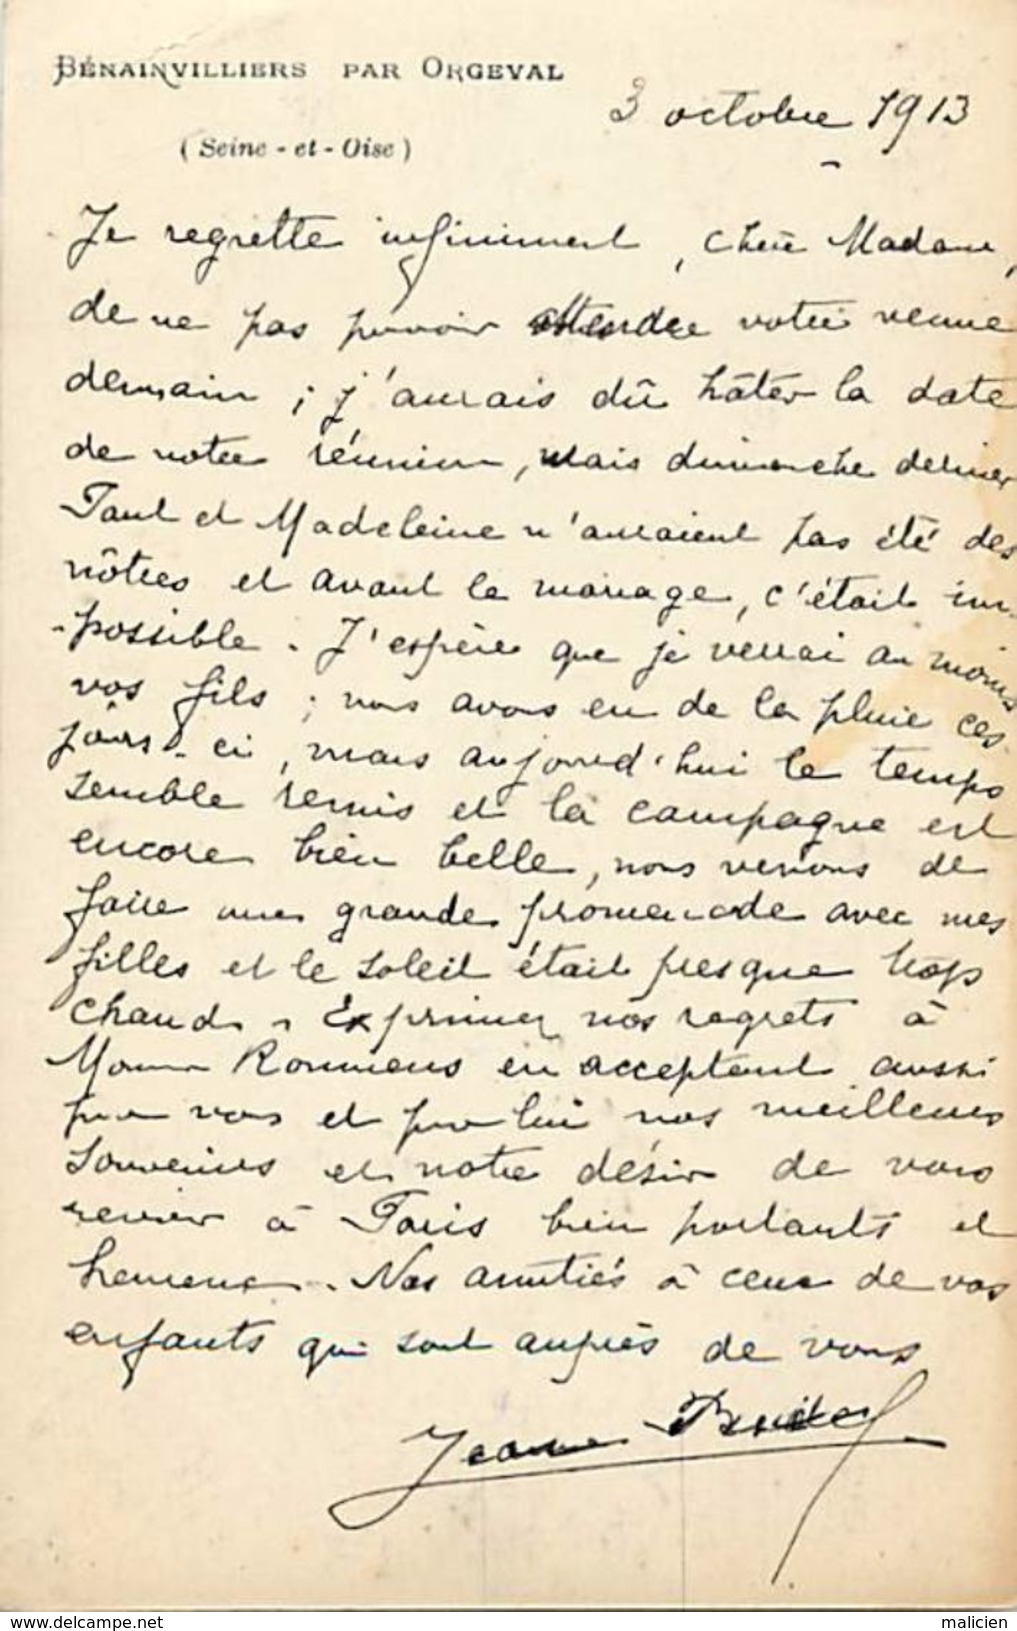 BÉNAINVILLIERS PAR ORGEVAL
3 octobre 1913
(Seine-et-Oise)
Je regrette infiniment, chère Madame,
de ne pas pouvoir attendre votre venue
demain ; j'aurais dû hâter la date
de notre réunion, mais dimanche dernier
Paul et Madeleine n'auraient pas été des
nôtres et avant le mariage, c'était im-
-possible. J'espère que je verrai au moins
vos fils ; nous avons eu de la pluie ces
jours-ci, mais aujourd'hui le temps
semble remis et la campagne est
encore bien belle, nous venons de
faire une grande promenade avec mes
filles et le soleil était presque trop
chaud. Exprimez nos regrets à
Rommens en acceptant aussi
pour vous et pour lui nos meilleurs
souvenirs et notre désir de vous
revoir à Paris bien portants et
heureux. Nos amitiés à ceux de vos
enfants qui sont auprès de vous
Jeanne
www.delcampe.net
malicien